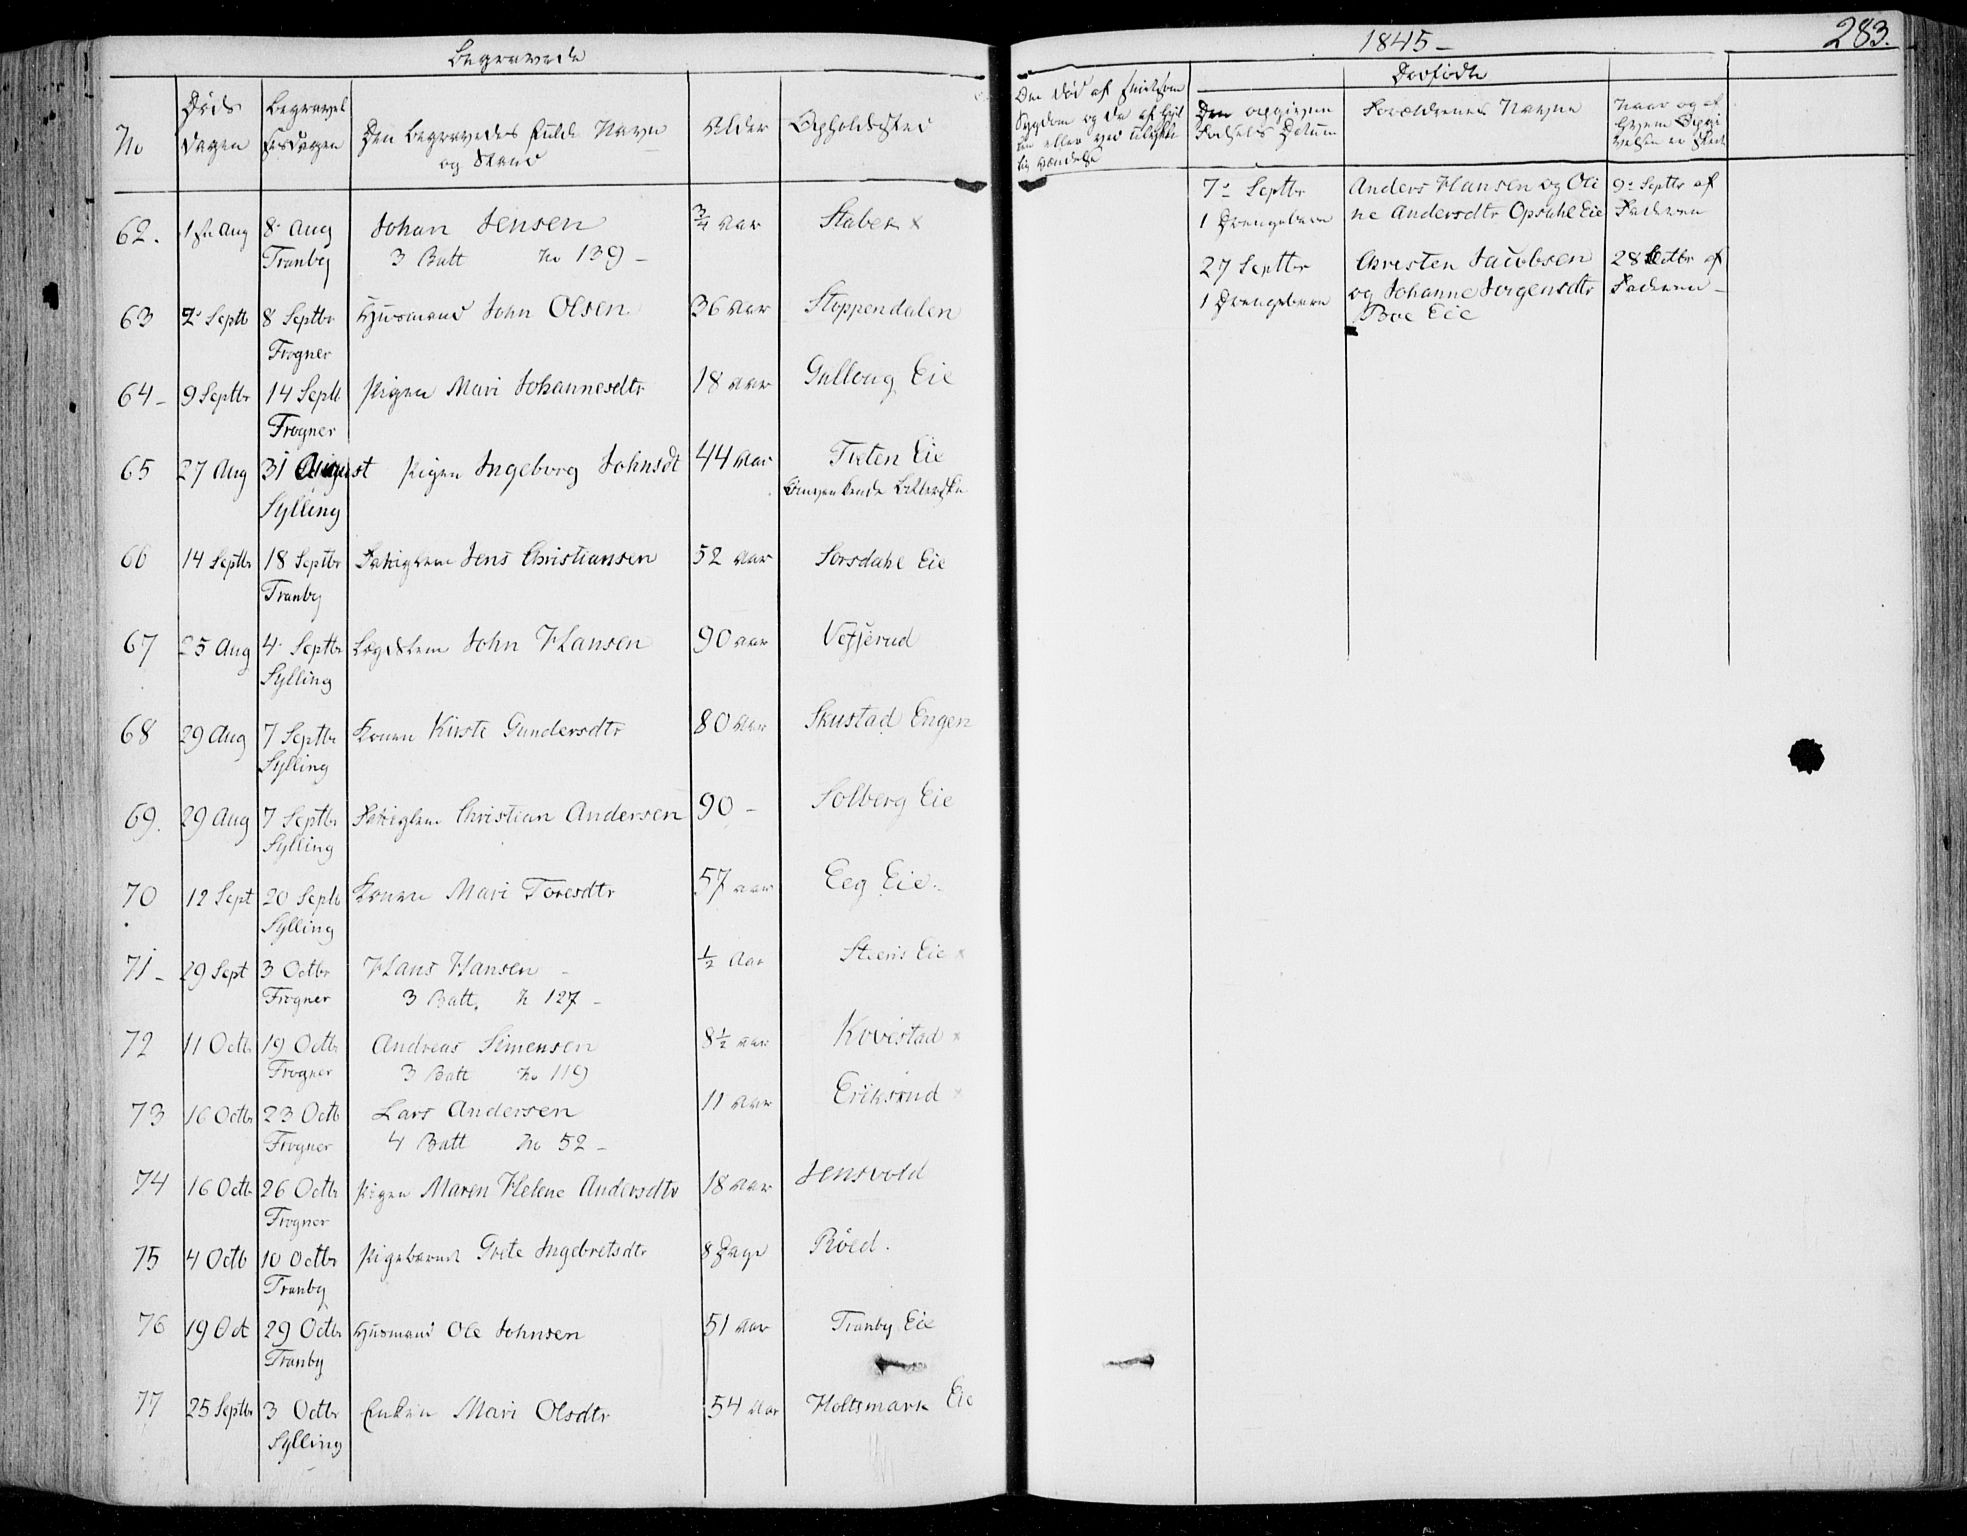 Begravede
No
Døds Dagen
Begravelsesdagen
Den Begravedes fulde Navn og Stand
Alder
Opholdssted
62. 1ste Aug 8. Aug Johan Jensen 3/4 Aar Staber x
Tranby 3 Batt No 139 –
63 2. Septb 8 Septbr Huusmand John Olsen 36 Aar Stoppendalen
Frogner
64 – 9 Septbr 14 Septb Pigen Mari Johannesdtr 18 Aar Gullaug Eie
Frogner
65 27 Aug 31 August Pigen Ingeborg Johnsdt 44 Aar Tveten Eie
Sylling
66 14 Septbr 18 Septbr Fattiglem Jens Christiansen 52 Aar Sørsdahl Eie
Tranby
67 25 Aug 4. Septbr Lægdslem John Hansen 90 Aar Vefferud
Sylling
68 29 Aug 7 Septbr Konen Kirsti Gundersdtr 80 Aar Skustad Engen
Sylling
69. 29 Aug 7 Septbr Fattiglem Christian Andersen 90 – Solberg Eie
Sylling
70 12 Sept 20 Septb Konen Mari Toresdtr 57 Aar Eeg Eie.
Sylling
71 – 29 Sept 3 Octbr Hans Hansen – 1/2 Aar Eie x
Frogner 3 Batt. N 127 –
72 11 Octb 19 Octbr Andreas Simensen 8 1/2 Aar Kovestad x
Frogner 3 Batt No 119
73 16 Octbr 23 Octb Lars Andersen 11 Aar Eriksrud x
Frogner 4 Batt No 52 –
74 16 Octb 26 Octbr Pigen Maren Helene Andersdtr 18 Aar Jensvold
Frogner
75 4 Octb 10 Octbr Pigebarnet Grete Ingebretsdtr 8 Dage Røed.
Tranby
76 19 Oct 29 Octbr Husmand Ole Johnsen 51 Aar Tranby Eie
Tranby
77 25 Septbr 3 Octbr Enken Mari Olsdtr 54 Aar Holtsmark Eie
Sylling
1845 –
283.
Dødfødte
Den opgivne Fødsels Datum
Forældrenes Navne
7. Septbr Anders Hansen og Oli 9. Septbr af
1 Drengebarn ne Andersdtr Opsahl Eie Faderen
27 Septbr Christen Jacobsen 28 Octbr af
1 Drengebarn og Johanne Jorgensdtr Faderen –
Boe Eie